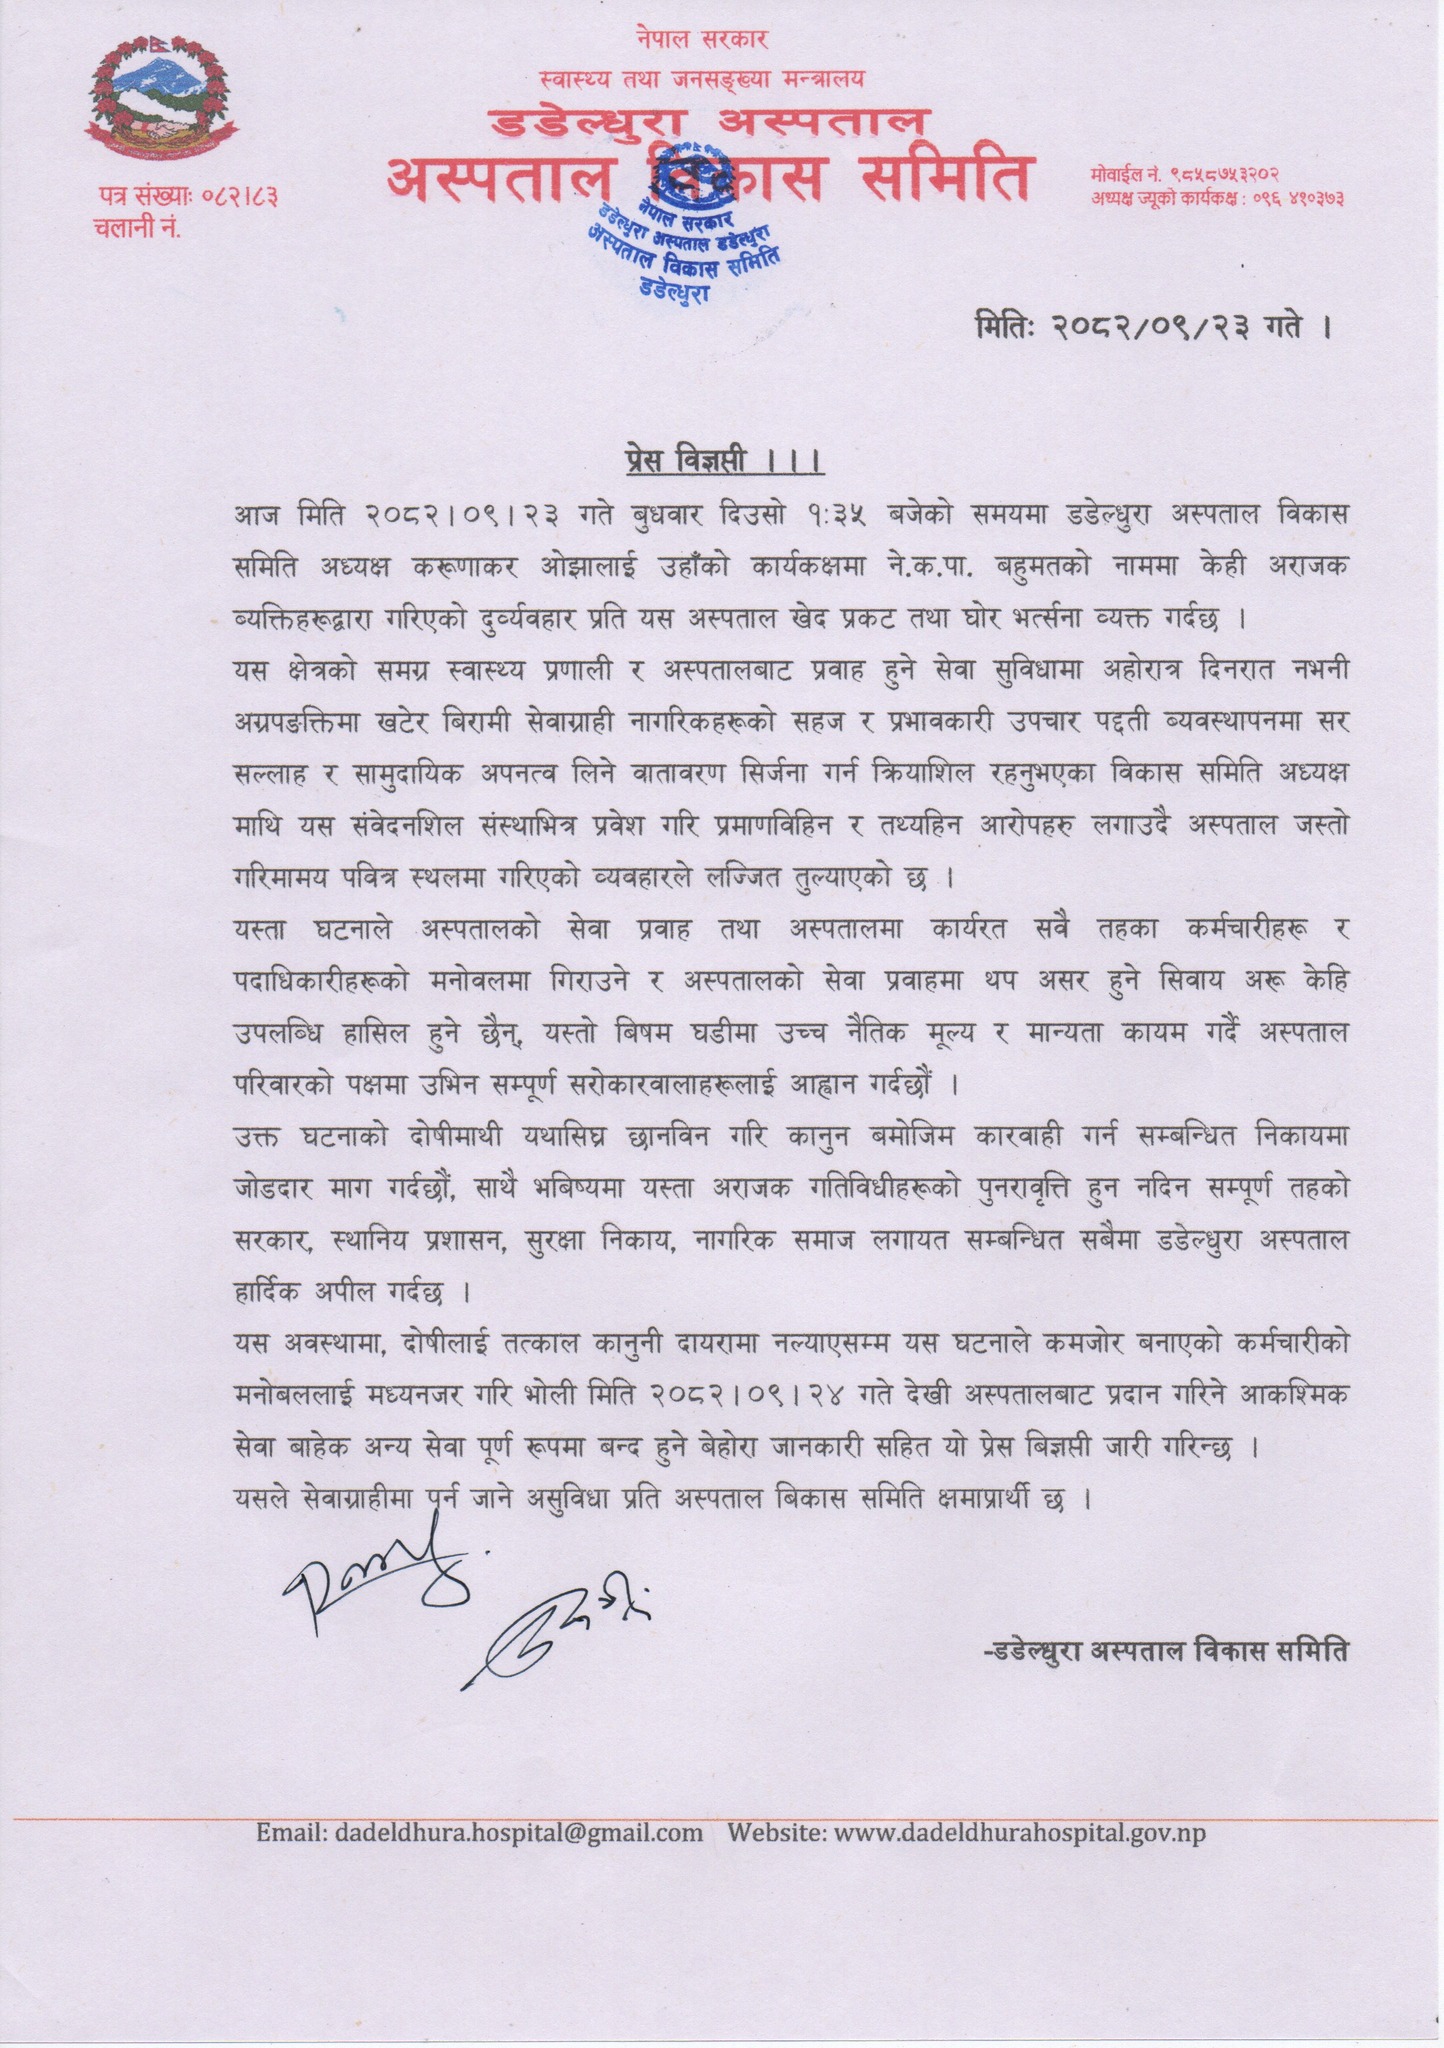 नेपाल सरकार
स्वास्थ्य तथा जनसङ्ख्या मन्त्रालय
डडेल्धुरा अस्पताल
अस्पताल विकास समिति
पत्र संख्याः ०८२।८३
चलानी नं.
मोवाईल नं. ९८५८७५३२०२
अध्यक्ष ज्यूको कार्यकक्ष : ०९६ ४१०३७३
नेपाल सरकार
डडेल्धुरा अस्पताल डडेल्धुरा
अस्पताल विकास समिति
डडेल्धुरा
मितिः २०८२/०९/२३ गते ।
प्रेस विज्ञप्ती ।।।
आज मिति २०८२।०९।२३ गते बुधवार दिउसो १:३५ बजेको समयमा डडेल्धुरा अस्पताल विकास
समिति अध्यक्ष करूणाकर ओझालाई उहाँको कार्यकक्षमा ने.क.पा. बहुमतको नाममा केही अराजक
व्यक्तिहरूद्वारा गरिएको दुर्व्यवहार प्रति यस अस्पताल खेद प्रकट तथा घोर भर्त्सना व्यक्त गर्दछ ।
यस क्षेत्रको समग्र स्वास्थ्य प्रणाली र अस्पतालबाट प्रवाह हुने सेवा सुविधामा अहोरात्र दिनरात नभनी
अग्रपङक्तिमा खटेर बिरामी सेवाग्राही नागरिकहरूको सहज र प्रभावकारी उपचार पद्दती ब्यवस्थापनमा सर
सल्लाह र सामुदायिक अपनत्व लिने वातावरण सिर्जना गर्न क्रियाशिल रहनुभएका विकास समिति अध्यक्ष
माथि यस संवेदनशिल संस्थाभित्र प्रवेश गरि प्रमाणविहिन र तथ्यहिन आरोपहरु लगाउदै अस्पताल जस्तो
गरिमामय पवित्र स्थलमा गरिएको व्यवहारले लज्जित तुल्याएको छ ।
यस्ता घटनाले अस्पतालको सेवा प्रवाह तथा अस्पतालमा कार्यरत सवै तहका कर्मचारीहरू र
पदाधिकारीहरूको मनोवलमा गिराउने र अस्पतालको सेवा प्रवाहमा थप असर हुने सिवाय अरू केहि
उपलब्धि हासिल हुने छैन्, यस्तो बिषम घडीमा उच्च नैतिक मूल्य र मान्यता कायम गर्दै अस्पताल
परिवारको पक्षमा उभिन सम्पूर्ण सरोकारवालाहरूलाई आह्वान गर्दछौं ।
उक्त घटनाको दोषीमाथी यथासिघ्र छानविन गरि कानुन बमोजिम कारवाही गर्न सम्बन्धित निकायमा
जोडदार माग गर्दछौं, साथै भबिष्यमा यस्ता अराजक गतिविधीहरूको पुनरावृत्ति हुन नदिन सम्पूर्ण तहको
सरकार, स्थानिय प्रशासन, सुरक्षा निकाय, नागरिक समाज लगायत सम्बन्धित सबैमा डडेल्धुरा अस्पताल
हार्दिक अपील गर्दछ ।
यस अवस्थामा, दोषीलाई तत्काल कानुनी दायरामा नल्याएसम्म यस घटनाले कमजोर बनाएको कर्मचारीको
मनोबललाई मध्यनजर गरि भोली मिति २०८२।०९।२४ गते देखी अस्पतालबाट प्रदान गरिने आकश्मिक
सेवा बाहेक अन्य सेवा पूर्ण रूपमा बन्द हुने बेहोरा जानकारी सहित यो प्रेस बिज्ञप्ती जारी गरिन्छ ।
यसले सेवाग्राहीमा पर्न जाने असुविधा प्रति अस्पताल बिकास समिति क्षमाप्रार्थी छ ।
-डडेल्धुरा अस्पताल विकास समिति
Email: dadeldhura.hospital@gmail.com Website: www.dadeldhurahospital.gov.np